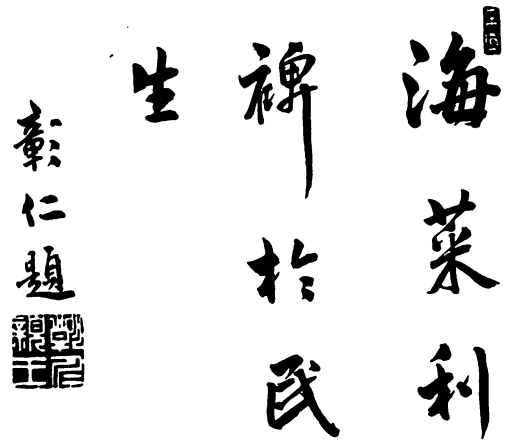 海菜利
裨於民
生
彰仁題